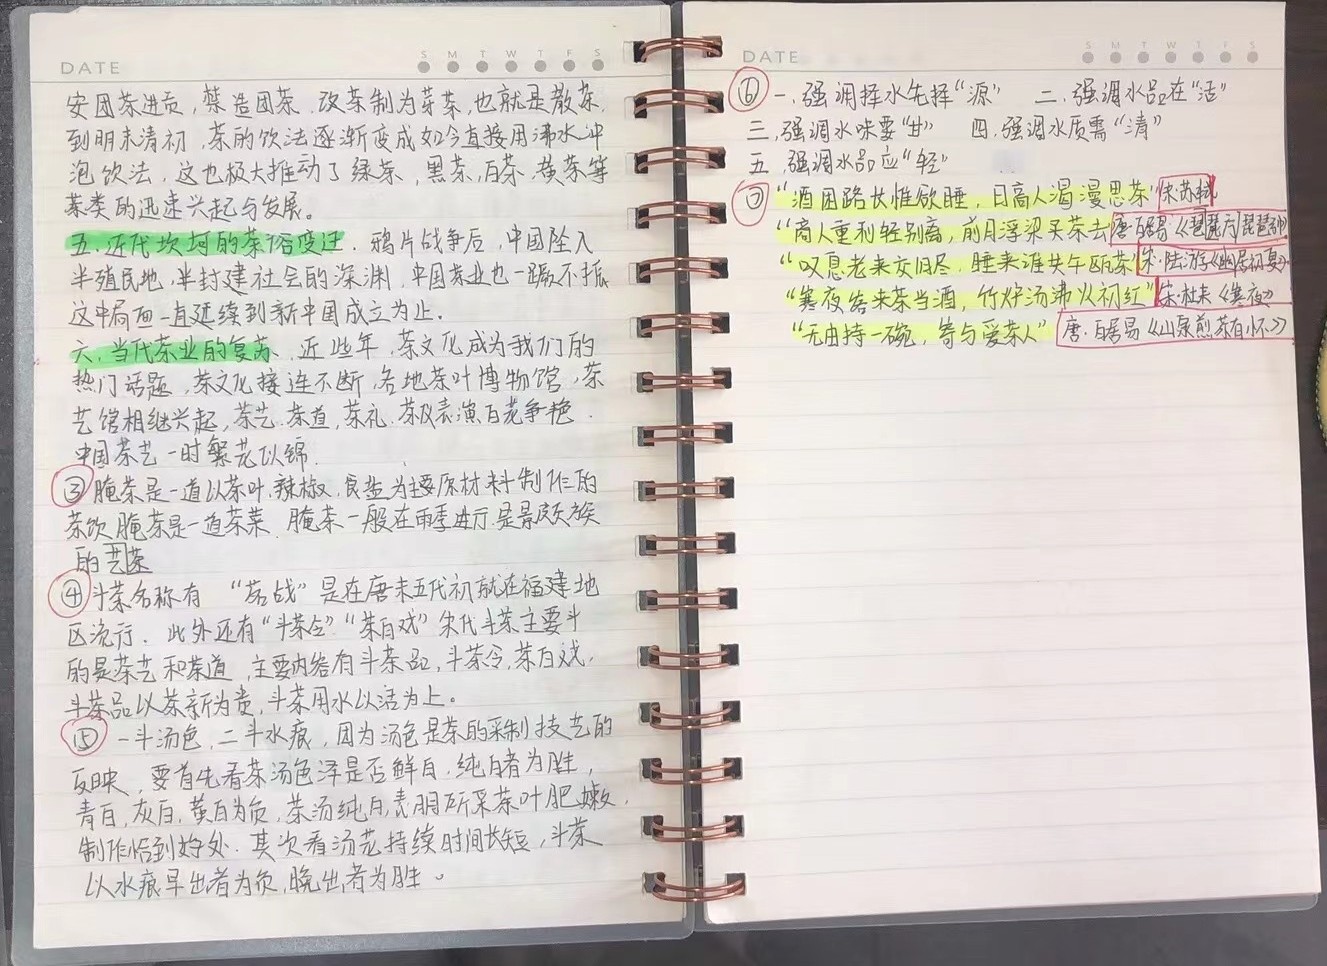 DATE
S M T W T F S
安团茶进贡，禁造团茶，改茶制为芽茶，也就是散茶，
到明末清初，茶的饮法逐渐变成如今直接用沸水冲
泡饮法，这也极大推动了绿茶，黑茶，白茶，黄茶等
茶类的迅速兴起与发展。
五.近代坎坷的茶俗变迁.鸦片战争后，中国坠入
半殖民地，半封建社会的深渊，中国茶业也一蹶不振
这种局面一直延续到新中国成立为止.
六.当代茶业的复苏，近些年，茶文化成为我们的
热门话题，茶文化接连不断，各地茶叶博物馆，茶
艺馆相继兴起，茶艺.茶道，茶礼.茶仪表演百花争艳.
中国茶艺一时繁花似锦.
③腌茶是一道以茶叶.辣椒.食盐为主要原材料制作的
茶饮腌茶是一道茶菜.腌茶一般在雨季进行.是景颇族
的芸茶
④斗茶名称有 “茗战”是在唐末五代初就在福建地
区流行.此外还有“斗茶令”“茶百戏”宋代斗茶主要斗
的是茶艺和茶道，主要内容有斗茶品，斗茶令，茶百戏，
斗茶品以茶新为贵，斗茶用水以活为上。
⑤一斗汤色，二斗水痕，因为汤色是茶的采制技艺的
反映，要首先看茶汤色泽是否鲜白，纯白者为胜，
青白，灰白，黄白为负，茶汤纯白，表明所采茶叶肥嫩，
制作恰到好处.其次看汤花持续时间长短，斗茶
以水痕早出者为负，晚出者为胜。
DATE
S M T W T F S
⑥一.强调择水先择“源” 二.强调水品在“活”
三.强调水味要“甘” 四.强调水质需“清”
五.强调水品应“轻”
⑦“酒困路长惟欲睡，日高人渴漫思茶”宋苏轼
“商人重利轻别离，前月浮梁买茶去唐白居易《琵琶行
“叹息老来交旧尽，睡来谁共午瓯茶”宋·陆游《幽居初夏》
“寒夜客来茶当酒，竹炉汤沸火初红”宋·杜耒《寒夜》
“无由持一碗，寄与爱茶人”唐.白居易《山泉煎茶有怀》